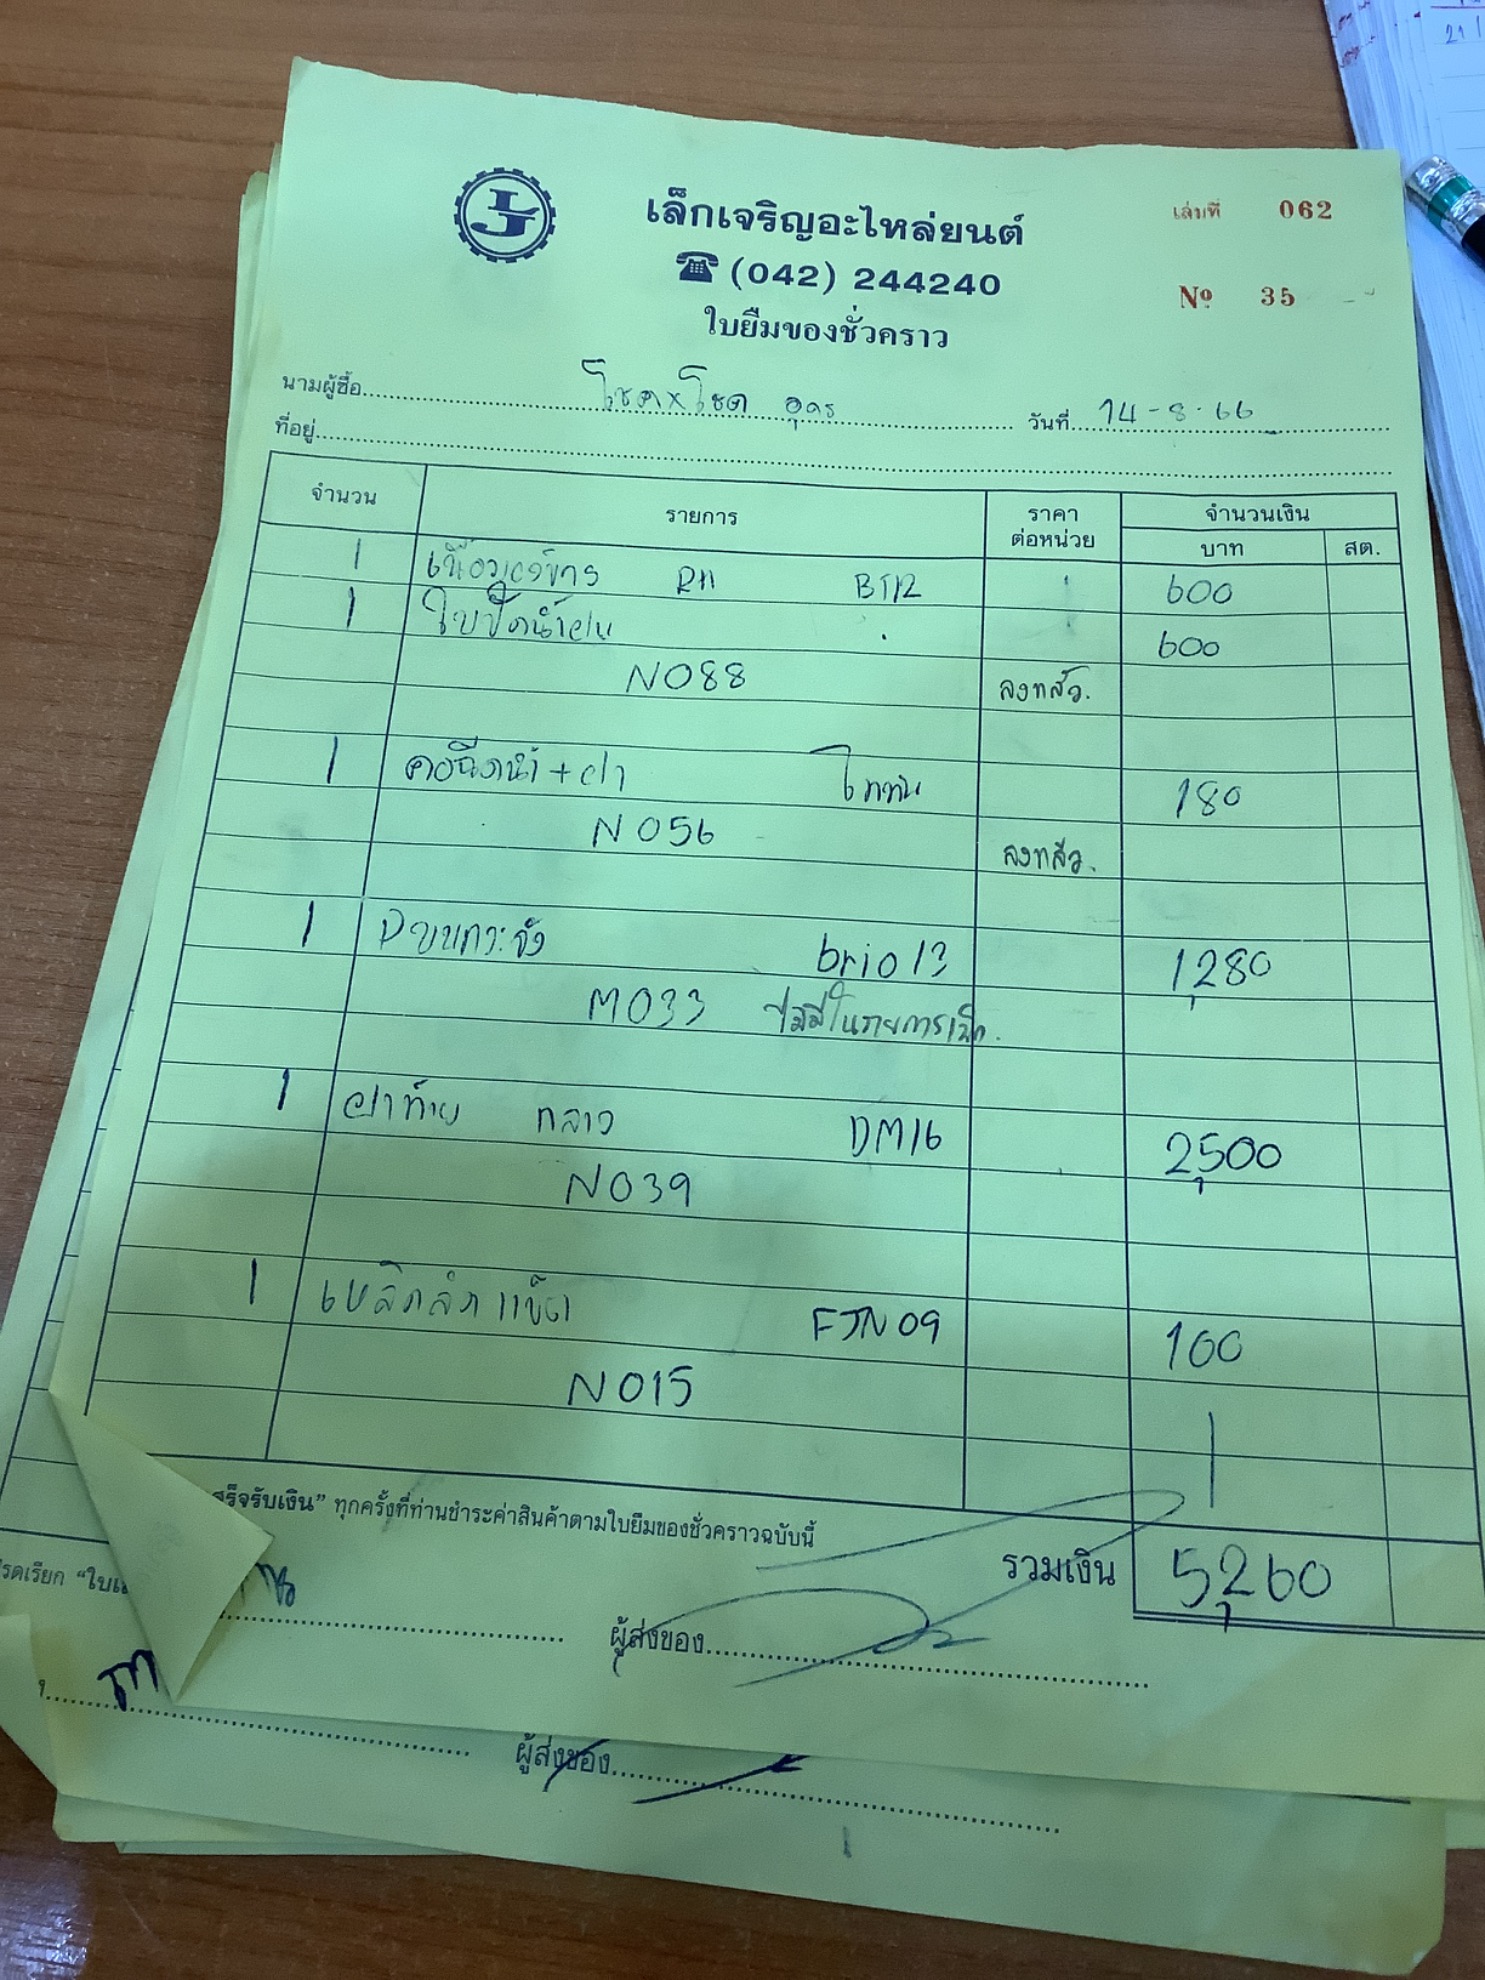 เล็กเจริญอะไหล่ยนต์
เล่มที่ 062
(042) 244240
No 35
ใบยืมของชั่วคราว
นามผู้ซื้อ โชคxโชค อุดร วันที่ 14-8-66
ที่อยู่
จำนวน รายการ ราคาต่อหน่วย จำนวนเงิน
บาท สต.
1 RH BT12 600
1 ใบปัดน้ำฝน 600
N088 ลงทส์ว.
1 คอฉีดน้ำ+ฝา ไททัน 180
N056 ลงทส์ว.
1 brio13 1,280
M033 ไม่มีในรายการเบิก.
1 ฝาท้าย กลาง DM16 2,500
N039
1 FJN09 100
N015
สร็จรับเงิน" ทุกครั้งที่ท่านชำระค่าสินค้าตามใบยืมของชั่วคราวฉบับนี้
รวมเงิน 5,260
รดเรียก "ใบเ
ผู้ส่งของ
ผู้ส่งของ